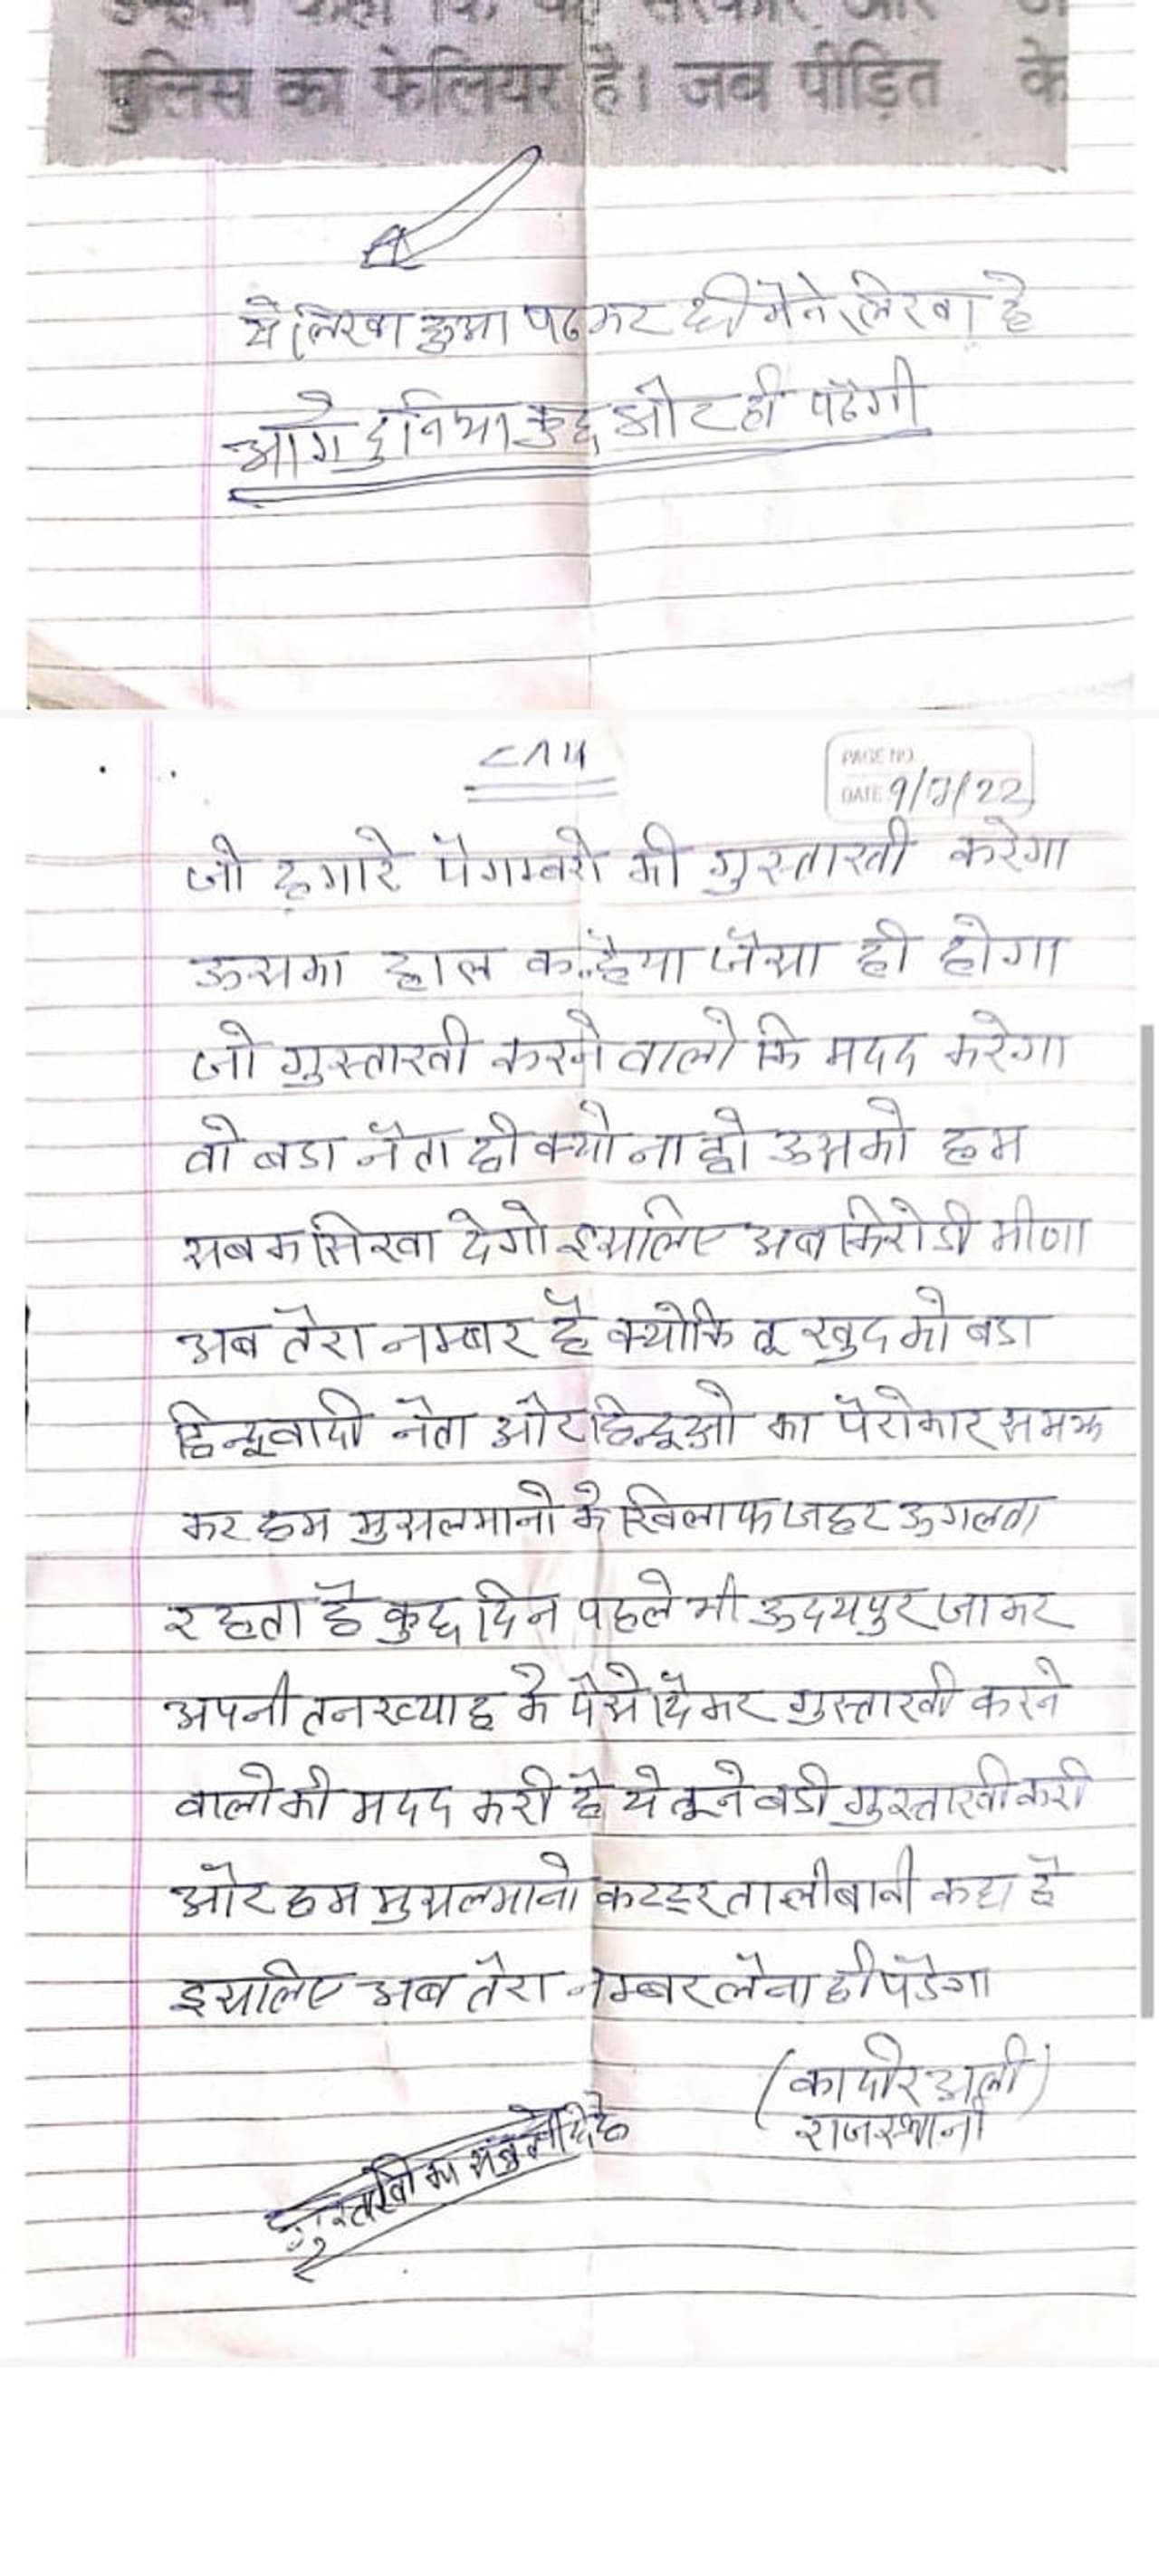 पुलिस का फेलियर है। जब पीड़ित के
ये लिखा हुआ पढकर ही मैने लिखा है
आगे दुनिया कुछ और ही पढेगी
PAGE NO.
DATE 9/7/22
जो हमारे पैगम्बरो की गुस्ताखी करेगा
ऊसका हाल कन्हैया जैसा ही होगा
जो गुस्ताखी करने वालो कि मदद करेगा
वो बडा नेता ही क्यो ना हो ऊसको हम
सबक सिखा देगो इसलिए अब किरोडी मीणा
अब तेरा नम्बर है क्योकि तू खुद को बडा
हिन्दूवादी नेता और हिन्दूओ का पैरोकार समझ
कर हम मुसलमानो के खिलाफ जहर ऊगलता
रहता है कुछ दिन पहले भी ऊदयपुर जाकर
अपनी तनख्याह के पैसे देकर गुस्ताखी करने
वालो की मदद करी है ये तूने बडी गुस्ताखी करी
और हम मुसलमानो कटटर तालीबानी कहा है
इसलिए अब तेरा नम्बर लेना ही पडेगा
(कादीर अली)
राजस्थानी
गुस्ताखी का